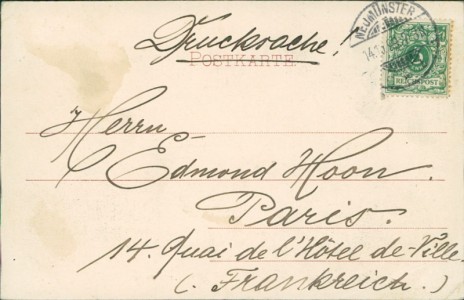 Drucksache!
POSTKARTE
NEUMÜNSTER
REICHSPOST
Herrn
Edmond Hoon.
Paris.
14. Quai de l'Hôtel de-Ville.
(Frankreich.)